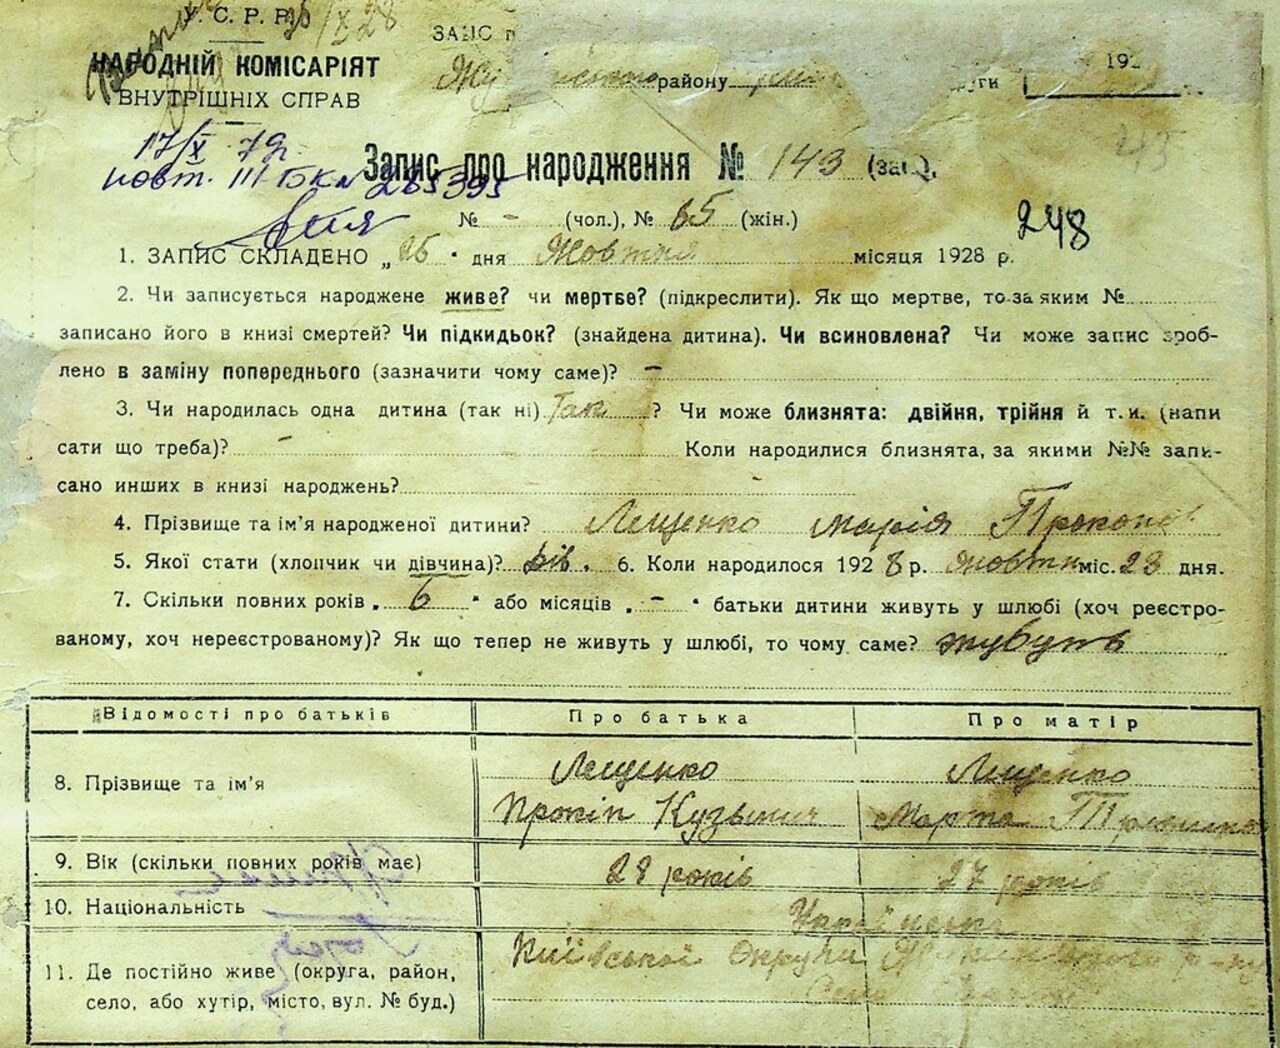 У. С. Р. Р. 26/X 28
НАРОДНІЙ КОМІСАРІЯТ
ВНУТРІШНІХ СПРАВ
району
192
17/X 79
повт. III БК № 265395
Запис про народження № 143 (заг.).
№ - (чол.), № 65 (жін.)
248
1. ЗАПИС СКЛАДЕНО „26" дня Жовтня місяця 1928 р.
2. Чи записується народжене живе? чи мертве? (підкреслити). Як що мертве, то за яким №
записано його в книзі смертей? Чи підкидьок? (знайдена дитина). Чи всиновлена? Чи може запис зроб-
лено в заміну попереднього (зазначити чому саме)? –
3. Чи народилась одна дитина (так ні) Так ? Чи може близнята: двійня, трійня й т. и. (напи
сати що треба)? – Коли народилися близнята, за якими №№ запи-
сано инших в книзі народжень?
4. Прізвище та ім'я народженої дитини? Лещенко Марія Прокопів
5. Якої стати (хлопчик чи дівчина)? дів. 6. Коли народилося 1928 р. жовтн міс. 23 дня.
7. Скільки повних років „ 6 " або місяців „ – " батьки дитини живуть у шлюбі (хоч реєстро-
ваному, хоч нереєстрованому)? Як що тепер не живуть у шлюбі, то чому саме? живуть
Відомості про батьків Про батька Про матір
8. Прізвище та ім'я Лещенко Прокіп Кузьмич Лещенко Марта
9. Вік (скільки повних років має) 28 років 27 років
10. Національність Українська
11. Де постійно живе (округа, район, Київської Округи
село, або хутір, місто, вул. № буд.) Село